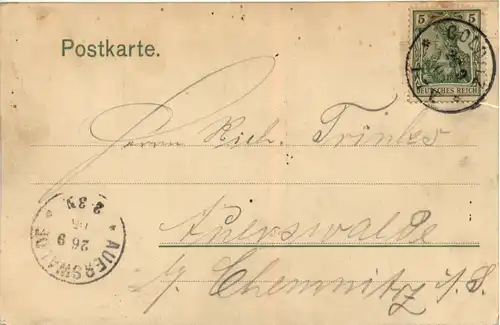 Postkarte.
5 5
DEUTSCHES REICH
Herrn Rich. Trinks
Auerswalde
b/ Chemnitz i/S.
* AUERSWALDE *
26 9